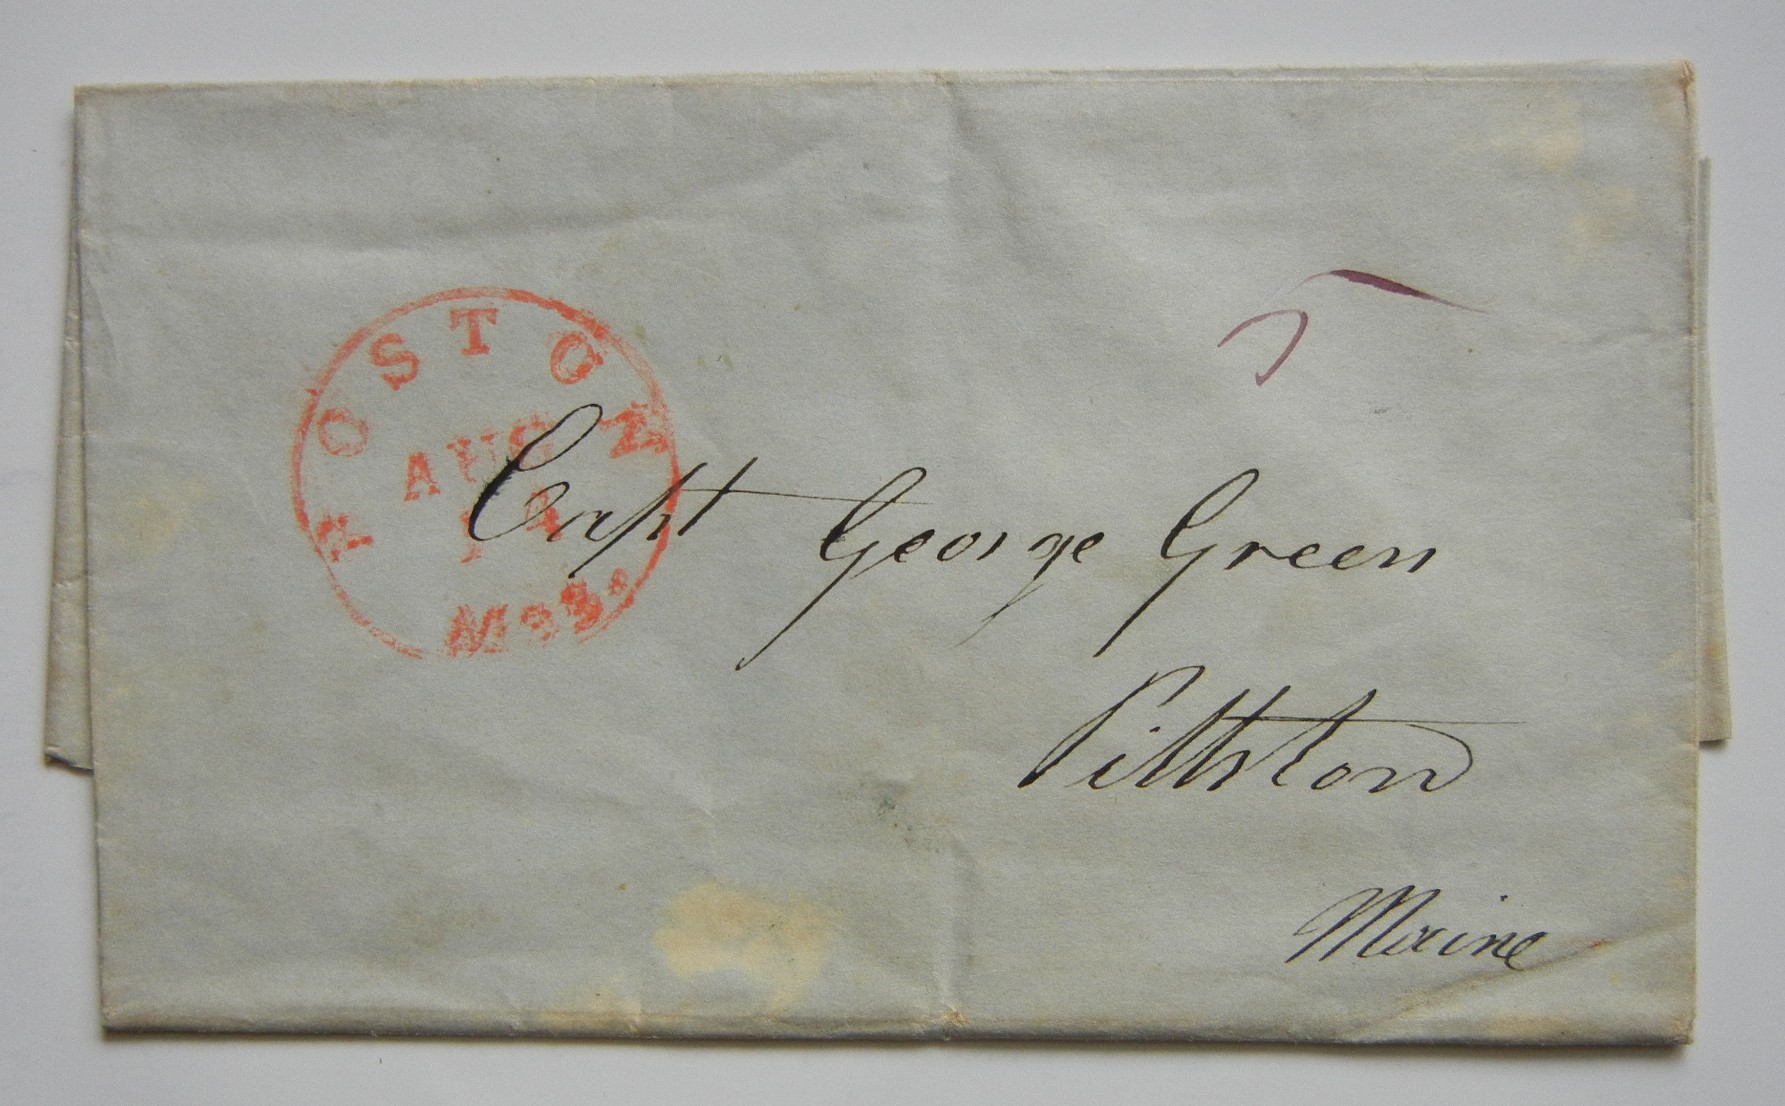 5
BOSTON
AUG
14
Mas.
Capt George Green
Pittston
Maine